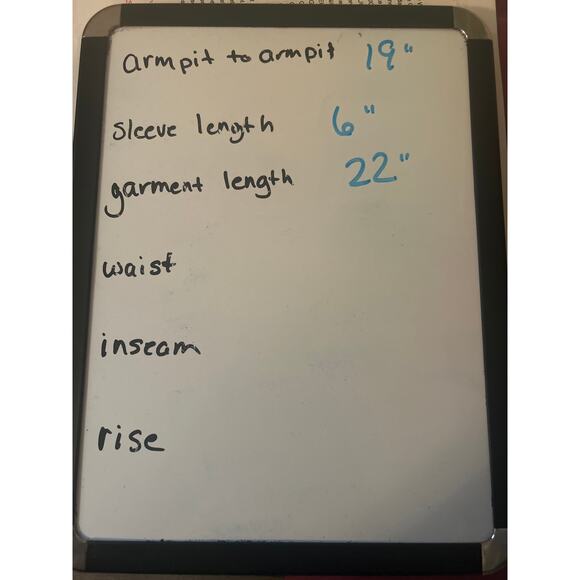 armpit to armpit 19"
sleeve length 6"
garment length 22"
waist
inseam
rise